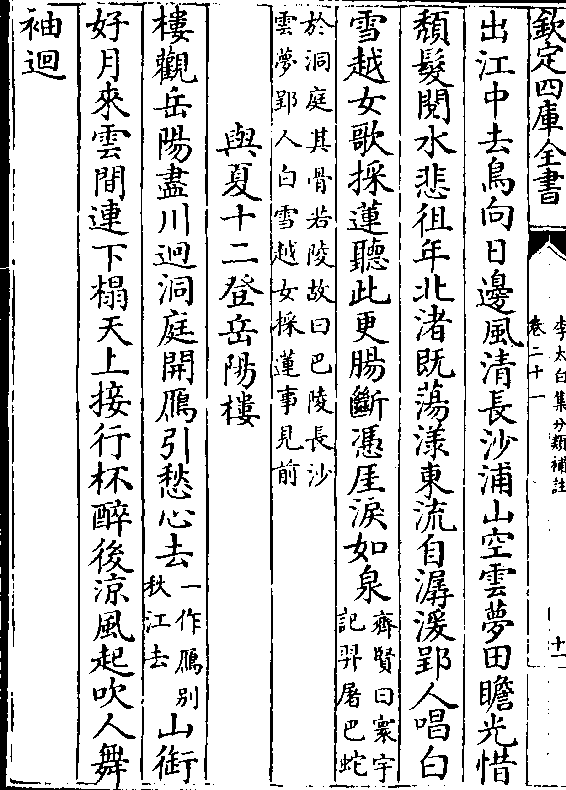 欽定四庫全書
李太白集分類補註
卷二十一
十一
出江中去鳥向日邊風清長沙浦山空雲夢田瞻光惜
頹髮閱水悲徂年北渚既蕩漾東流自潺湲郢人唱白
雪越女歌採蓮聽此更腸斷憑厓淚如泉
齊賢曰寰宇
記羿屠巴蛇
於洞庭其骨若陵故曰巴陵長沙
雲夢郢人白雪越女採蓮事見前
與夏十二登岳陽樓
樓觀岳陽盡川迴洞庭開鴈引愁心去
一作鴈別
秩江去
山銜
好月來雲間連下榻天上接行杯醉後涼風起吹人舞
袖迴